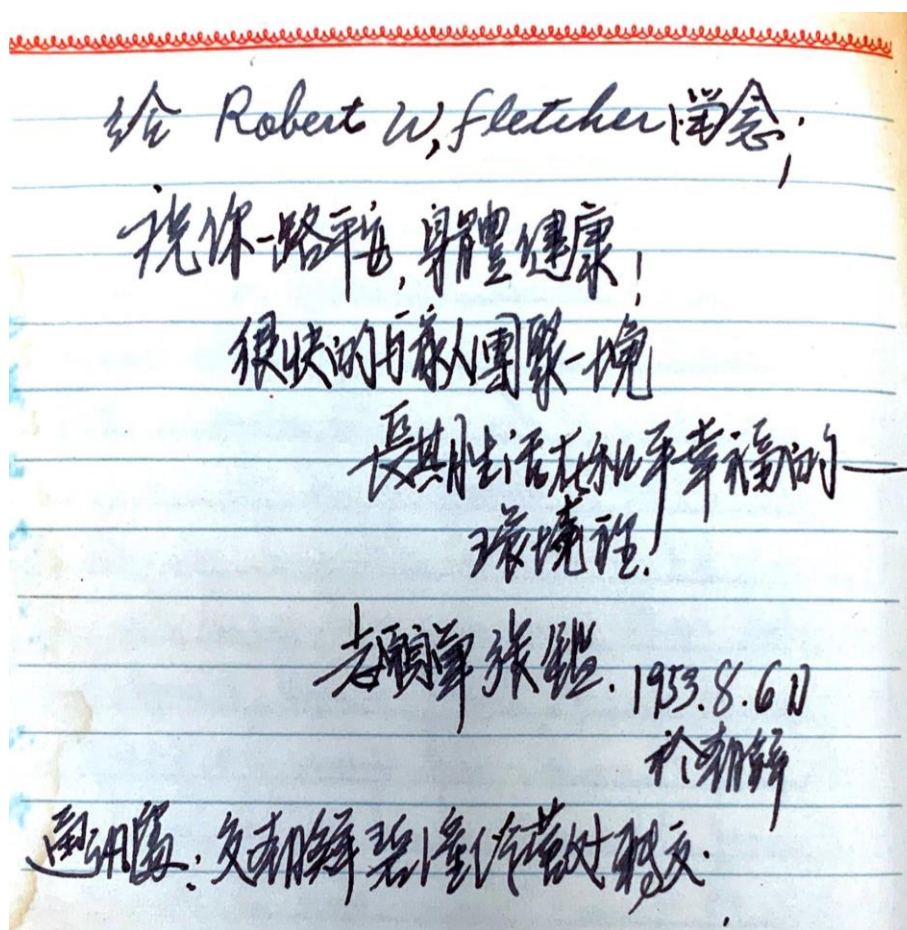 给 Robert W, Fletcher 留念;
祝你一路平安, 身體健康!
很快的与家人團聚一塊
長期生活在和平幸福的—
環境裡.
志願軍 张鑑. 1953.8.6日
於朝鮮
通訊處: 交朝鮮碧潼 转交.